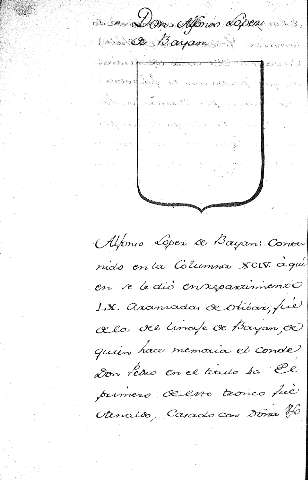 Don Alfonso Lopez
de Bayan
Alfonso Lopez de Bayan: Conte
nido en la Columna XCIV. à qui
en se le dió en repartimiento
LX. Aranzadas de olibar, fué
de lo del linaje de Bayan, de
quien hace memoria el conde
Don Pedro en el titulo 60 El
primero de este tronco fué
Arnaldo, Casado con Doña